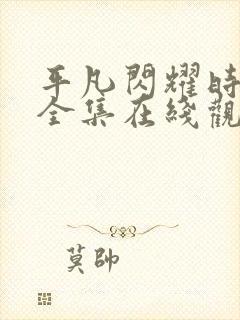 平凡閃耀時
全集在綫觀
莫帥